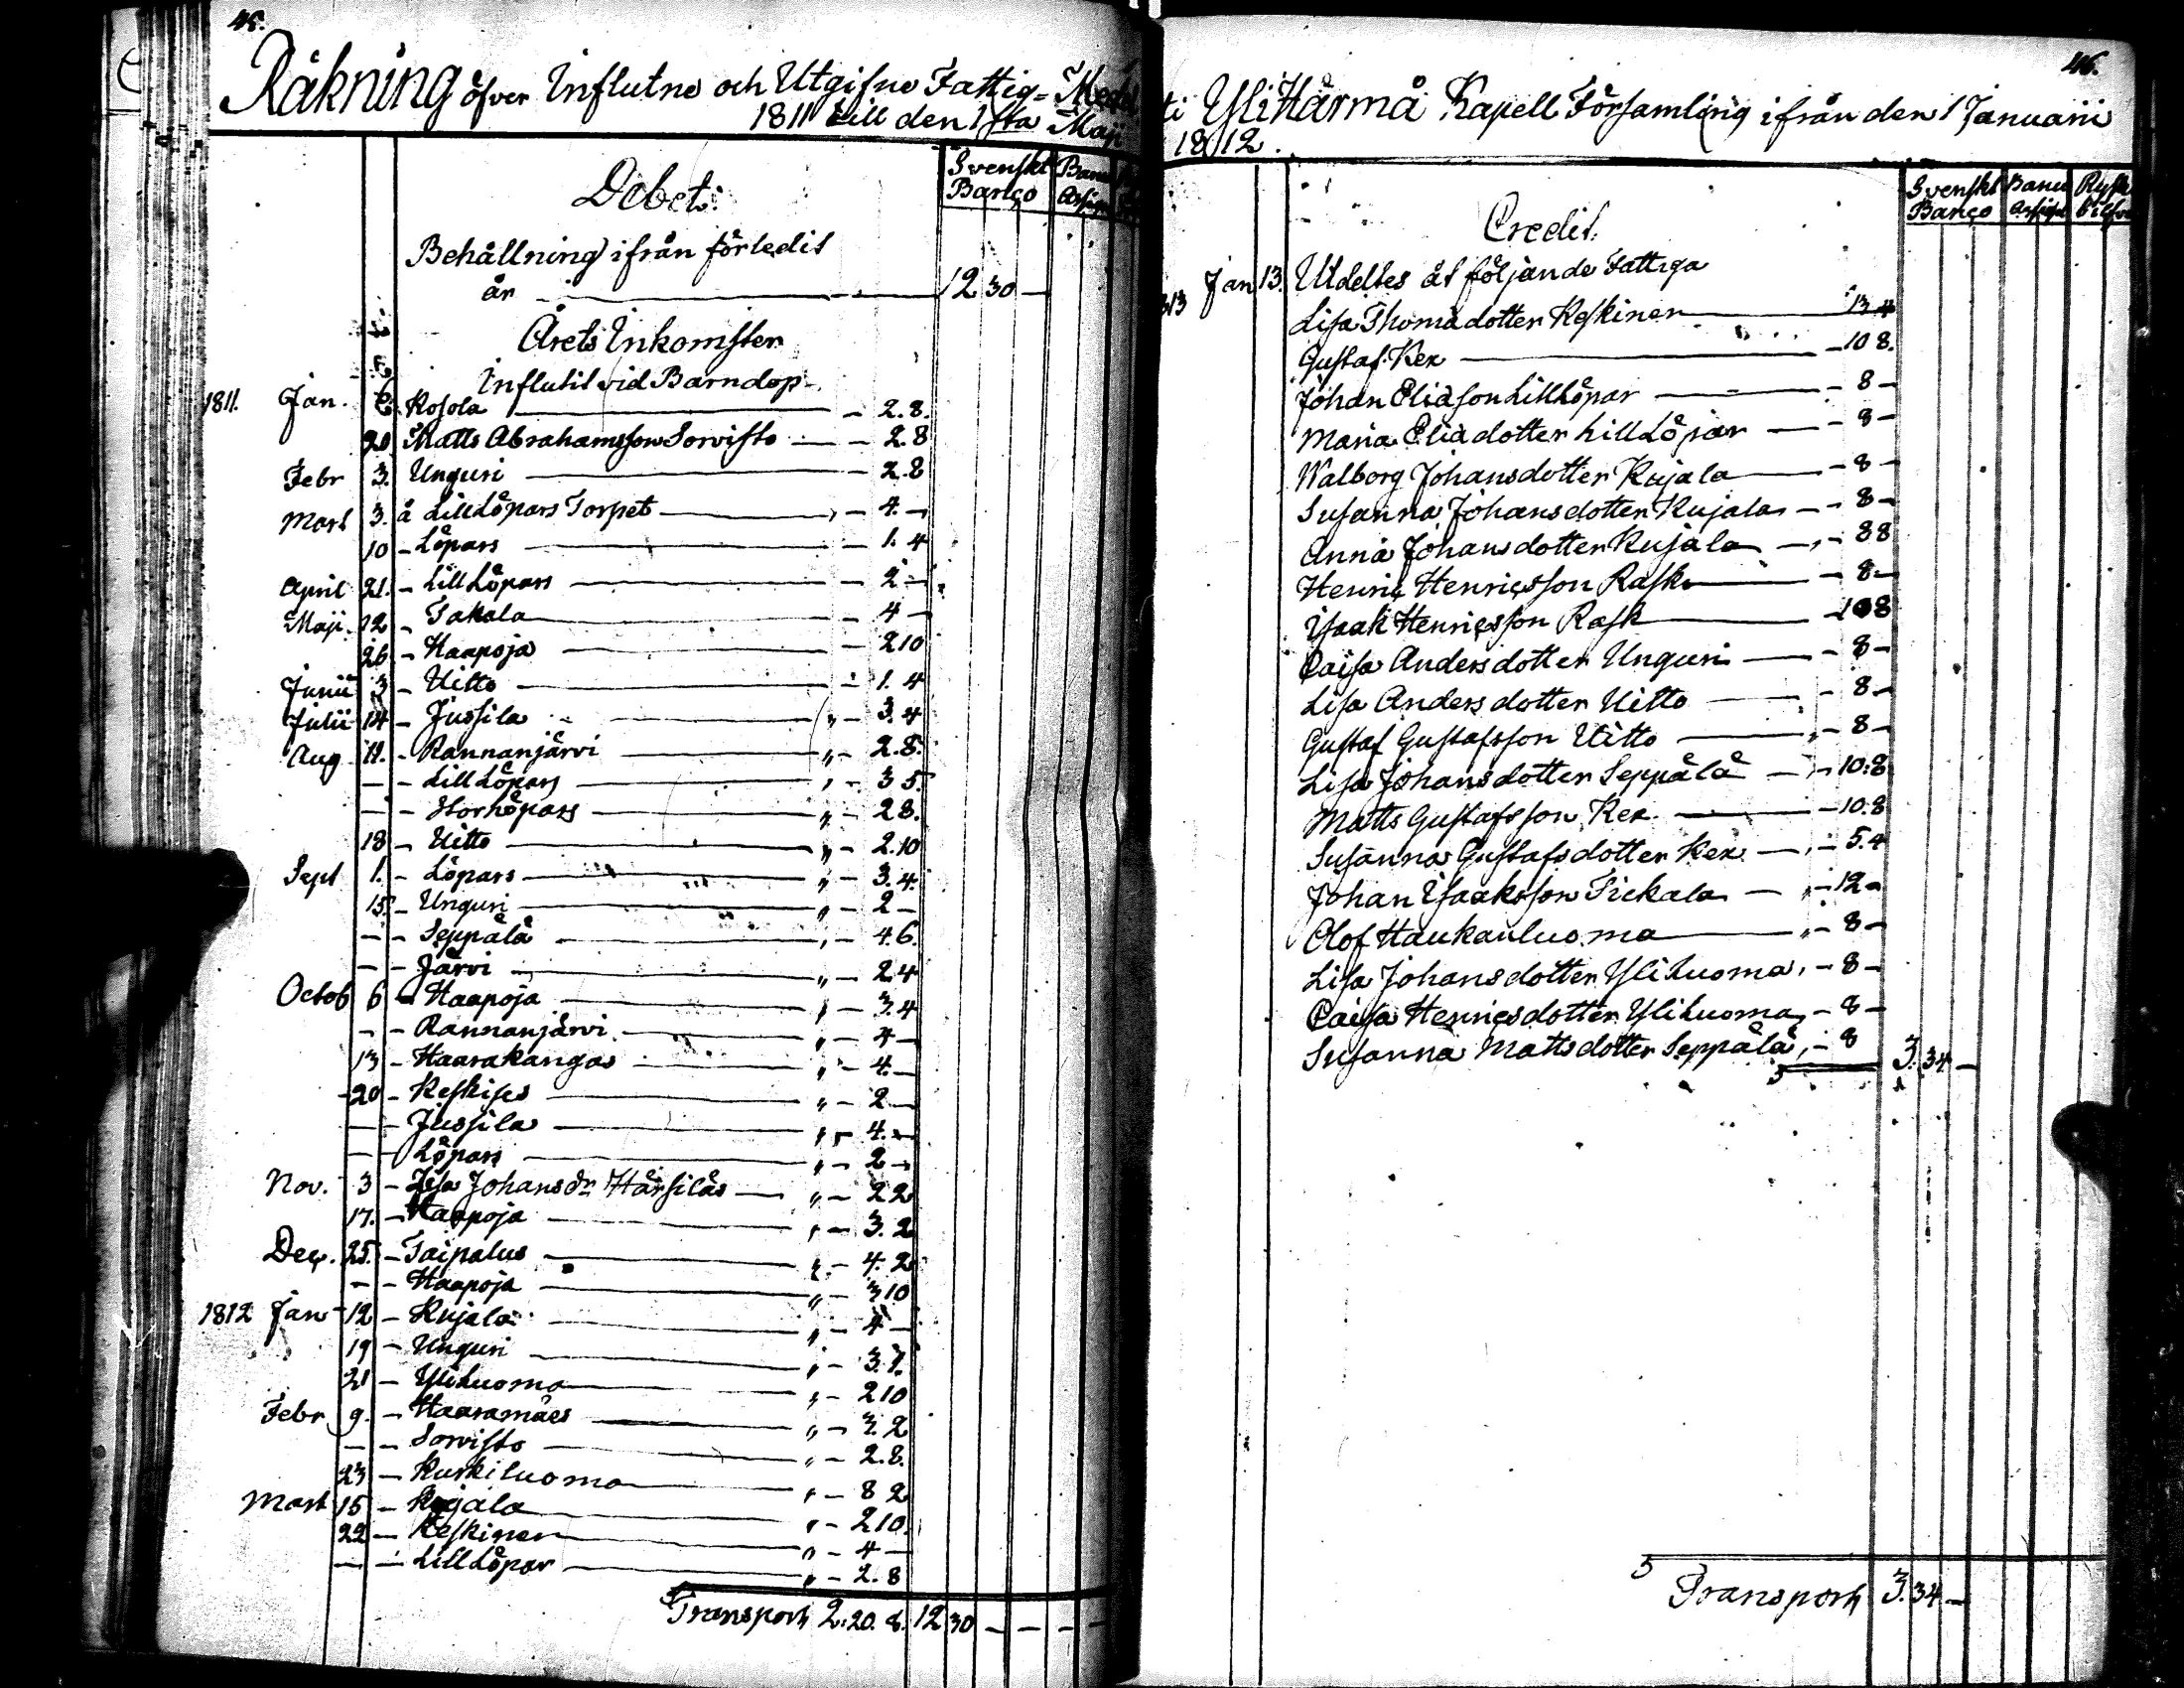 45.
Räkning öfver Influtne och Utgifne Fattig=Medel
1811 till den 1sta Maji
Debet:
Svenskt Banco
Behållning ifrån förledit
år 12 30 —
Årets Inkomster
Influtit vid Barndop
1811. Jan. 6. Kosola — 2.8.
20 Matts Abrahamsson Sorvisto — 2.8
Febr 3. Unguri — 2.8
Mart 3. å LillLöpars Torpet — 4 —
10 — Löpars — 1. 4
April 21. — LillLöpars — 2 —
Maji 12 — Takala — 4 —
26 — Haapoja — 2 10
Junii 3 — Uitto — 1. 4
Julii 14 — Jussila — 3.4
Aug 11. — Rannanjärvi — 2.8.
— — LillLöpars — 3 5.
— — Storlöpars — 2 8.
18 — Uitto — 2.10
Sept 1. — Löpars — 3.4.
15. — Unguri — 2 —
— — Seppälä — 4.6.
— — Järvi — 2.4
Octob 6 — Haapoja — 3.4
— — Rannanjärvi — 4 —
13 — Haarakangas — 4. —
20 — Keskises — 2 —
— — Jussila — 4. —
— — Löpars — 2 —
Nov. 3 — Lisa Johansdr Härsiläs — 2 2
17. — Haapoja — 3. 2
Dec. 25. — Taipalus — 4. 2
— — Haapoja — 3 10
1812 Jan 12 — Kujala — 4 —
19 — Unguri — 3.7.
21 — Yliluoma — 2 10
Febr 9. — Haaramäes — 3. 2
— — Sorvisto — 2.8.
23 — Kurkiluoma — 8 2
Mart 15 — Kujala — 2 10.
22 — Keskinen — 4 —
— — LillLöpar — 2.8
Transport 2. 20. 8. 12 30 — — — —
46.
ti YliHärmä Kapell Församling ifrån den 1 Januarii
1812.
Credit.
Svenskt Banco
Jan 13. Utdeltes åt följande Fattiga
Lisa Thomadotter Keskinen — 13 4
Gustaf Kex — 10 8.
Johan Eliasson LillLöpar — 8 —
Maria Eliadotter LillLöpar — 8 —
Walborg Johansdotter Kujala — 8 —
Susanna Johansdotter Kujala — 8 —
Anna Johansdotter Kujala — 8 8
Henric Henricsson Rask — 8 —
Isaak Henricsson Rask — 10 8
Caisa Andersdotter Unguri — 8 —
Lisa Andersdotter Uitto — 8 —
Gustaf Gustafsson Uitto — 8 —
Lisa Johansdotter Seppälä — 10.8
Matts Gustafsson Kex — 10.8
Susanna Gustafsdotter Kex — 5.4
Johan Isaaksson Tickala — 12 —
Olof Haukanluoma — 8 —
Lisa Johansdotter Yliluoma — 8 —
Caisa Henricsdotter Yliluoma — 8 —
Susanna Mattsdotter Seppälä — 8 3. 34 —
Transport 3. 34 —